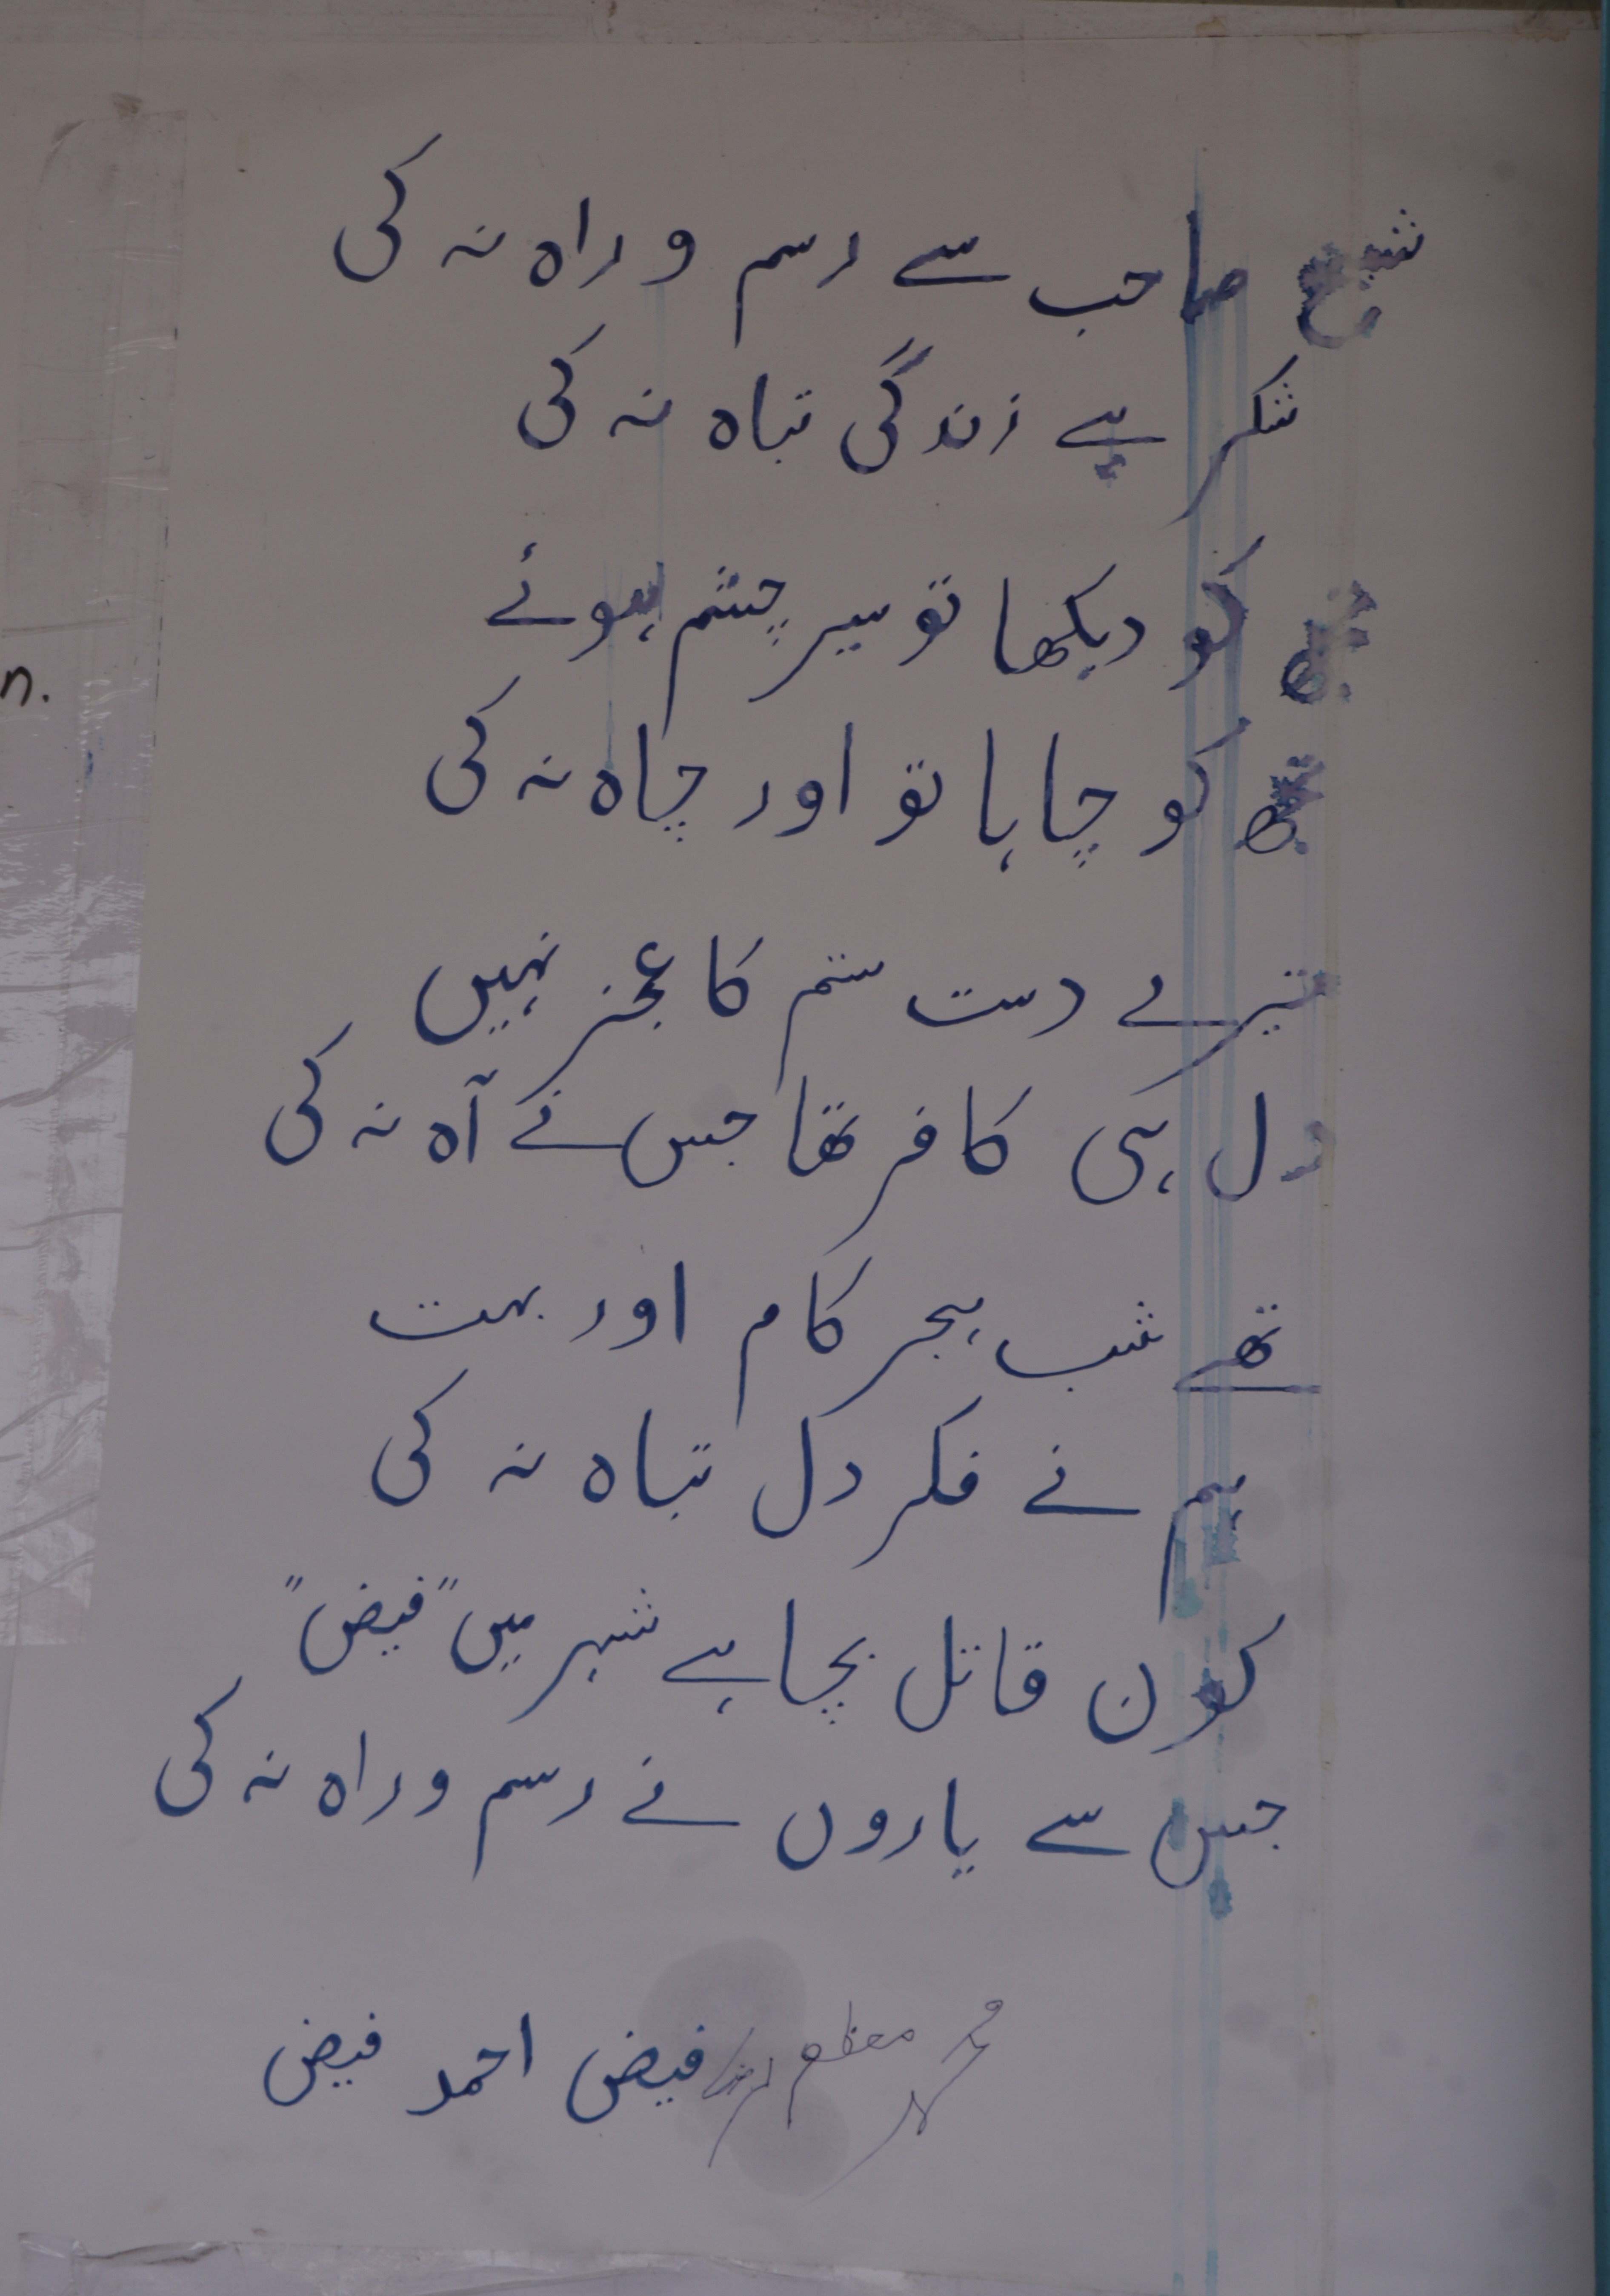 شیخ صاحب سے رسم و راہ نہ کی
شکر ہے زندگی تباہ نہ کی
تجھ کو دیکھا تو سیر چشم ہوئے
تجھ کو چاہا تو اور چاہ نہ کی
تیرے دست ستم کا عجز نہیں
دل ہی کافر تھا جس نے آہ نہ کی
تھے شب ہجر کام اور بہت
ہم نے فکر دل تباہ نہ کی
کون قاتل بچا ہے شہر میں "فیض"
جس سے یاروں نے رسم و راہ نہ کی
محمد معظم فیض احمد فیض
n.